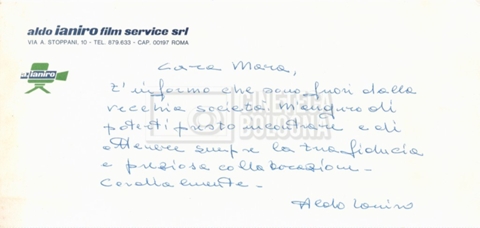 aldo ianiro film service srl
VIA A. STOPPANI, 10 - TEL. 879.633 - CAP. 00197 ROMA
a. ianiro
Cara Mara,
T'informo che sono fuori dalla
vecchia società. M'auguro di
poterti presto incontrare e di
ottenere sempre la tua fiducia
e preziosa collaborazione -
Cordialmente -
Aldo Ianiro
CINETECA
BOLOGNA